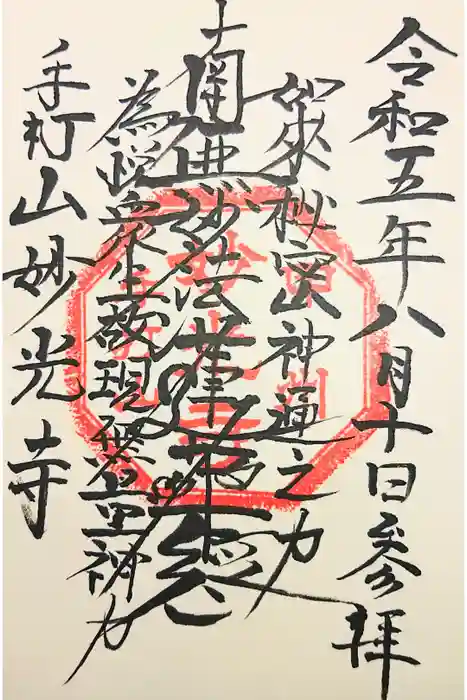 令和五年八月十日參拝
如来秘密神通之力
南無妙法蓮華経
為悦衆生故現無量神力
山妙光寺